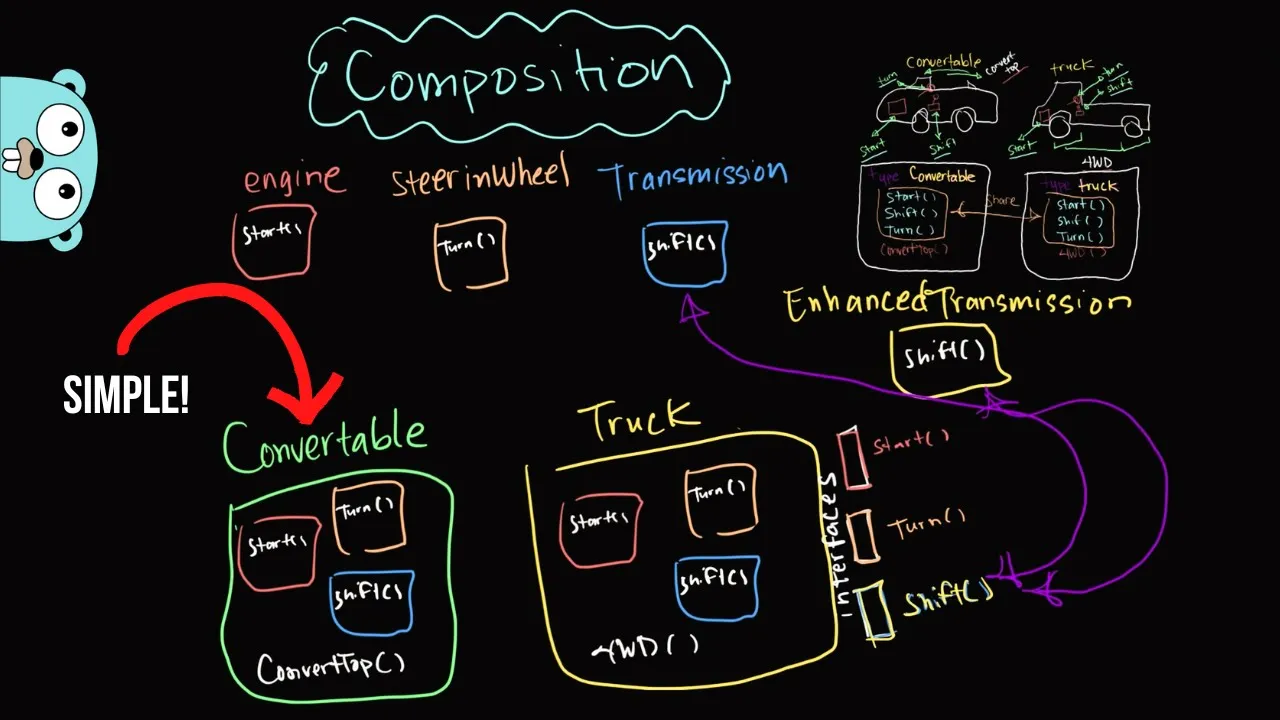 Composition
engine
Start()
SteerinWheel
Turn()
Transmission
Shift()
Convertable
turn
Convert
top
Start
Shift
truck
turn
shift
Start
4WD
type Convertable
Start()
Shift()
Turn()
ConvertTop()
share
type truck
Start()
Shif()
Turn()
4WD()
EnhancedTransmission
Shift()
SIMPLE!
Convertable
Start()
Turn()
Shift()
ConvertTop()
Truck
Start()
Turn()
Shift()
4WD()
interfaces
Start()
Turn()
Shift()